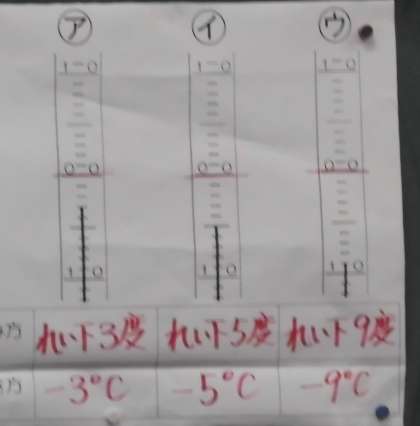 ア イ ウ
10 10 10
0 0 0
10 10 10
れい下3度 れい下5度 れい下9度
方 -3°C -5°C -9°C